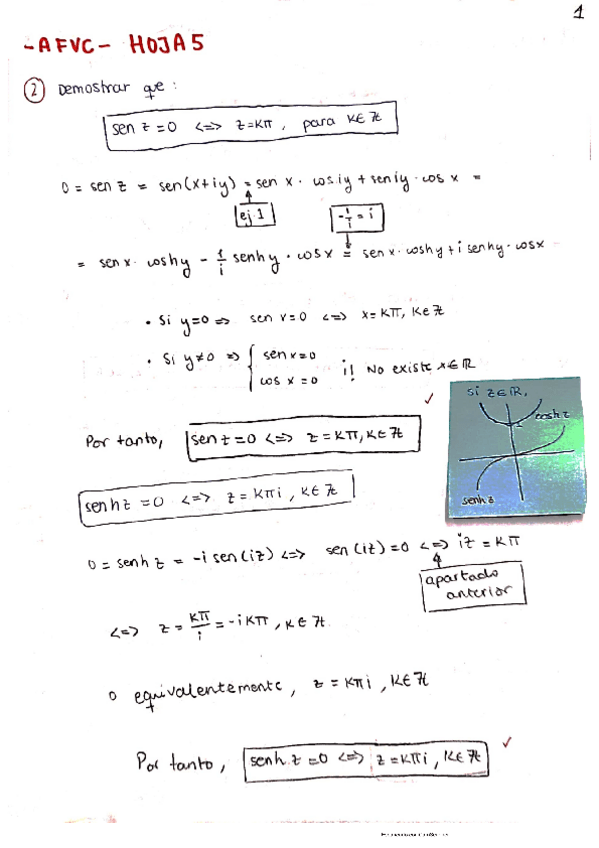 1
-AFVC- HOJA 5
② Demostrar que:
sen z = 0 <=> z = kπ, para k∈ℤ
0 = sen z = sen(x+iy) = sen x · cos iy + sen iy · cos x =
ej. 1
-1/i = i
= sen x · cosh y - 1/i senh y · cos x = sen x · cosh y + i senh y · cos x
• Si y=0 => sen x=0 <=> x=kπ, k∈ℤ
• Si y≠0 => { sen x=0
cos x=0 ¡! No existe x∈ℝ
✓
Si z∈ℝ,
cosh z
1
senh z
Por tanto, sen z=0 <=> z=kπ, k∈ℤ
senh z = 0 <=> z = kπi, k∈ℤ
0 = senh z = -i sen(iz) <=> sen(iz)=0 <=> iz = kπ
apartado
anterior
<=> z = kπ/i = -ikπ, k∈ℤ.
o equivalentemente, z = kπi, k∈ℤ
Por tanto, senh z = 0 <=> z = kπi, k∈ℤ ✓